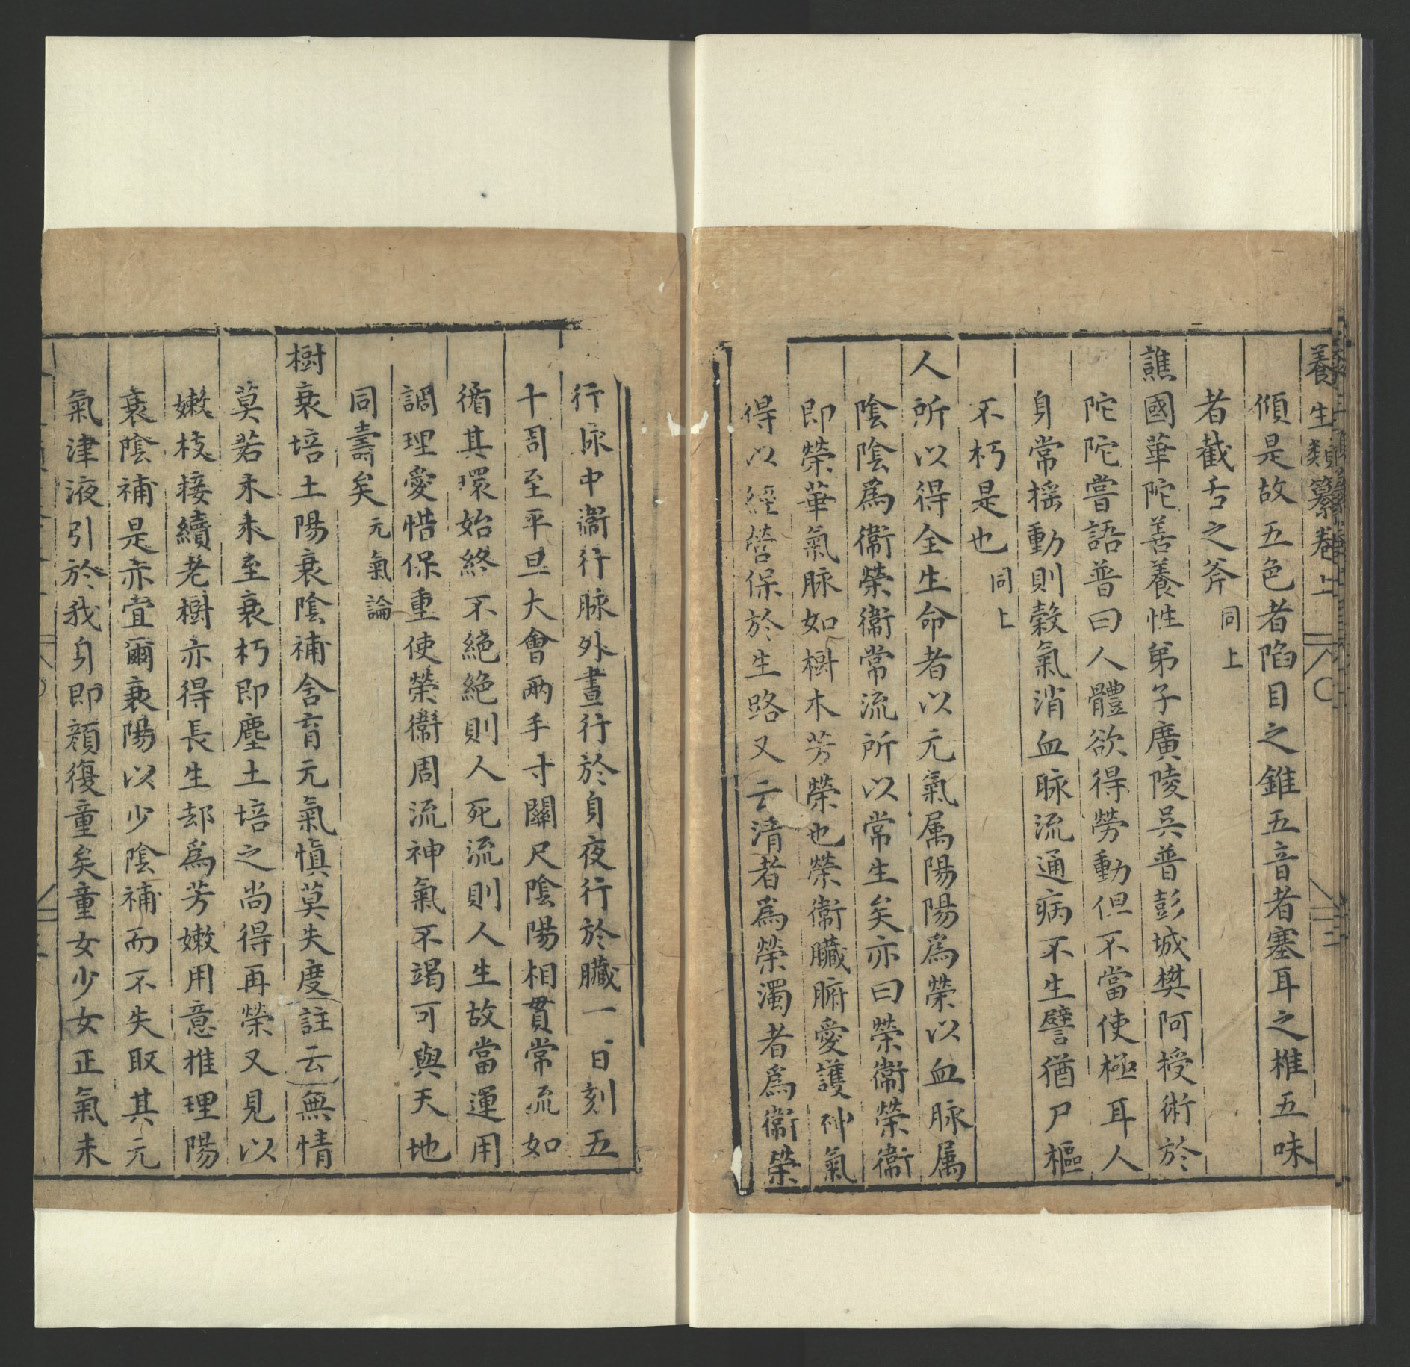 養生類纂卷上
傾是故五色者陷目之錐五音者塞耳之椎五味
者截舌之斧同上
譙國華陀善養性弟子廣陵吳普彭城樊阿授術於
陀陀嘗語普曰人體欲得勞動但不當使極耳人
身常搖動則穀氣消血脉流通病不生譬猶戶樞
不朽是也同上
人所以得全生命者以元氣属陽陽爲榮以血脉属
陰陰爲衞榮衞常流所以常生矣亦曰榮衞榮衞
即榮華氣脉如樹木芳榮也榮衞臟腑愛護神氣
得以經營保於生路又云清者爲榮濁者爲衞榮
行脉中衞行脉外晝行於身夜行於臟一日刻五
十周至平旦大會兩手寸關尺陰陽相貫常流如
循其環始終不絶絶則人死流則人生故當運用
調理愛惜保重使榮衞周流神氣不竭可與天地
同壽矣元氣論
樹衰培土陽衰陰補含育元氣愼莫失度註云無情
莫若木木至衰朽即塵土培之尚得再榮又見以
嫩枝接續老樹亦得長生却爲芳嫩用意推理陽
衰陰補是亦宜爾衰陽以少陰補而不失取其元
氣津液引於我身即顏復童矣童女少女正氣未